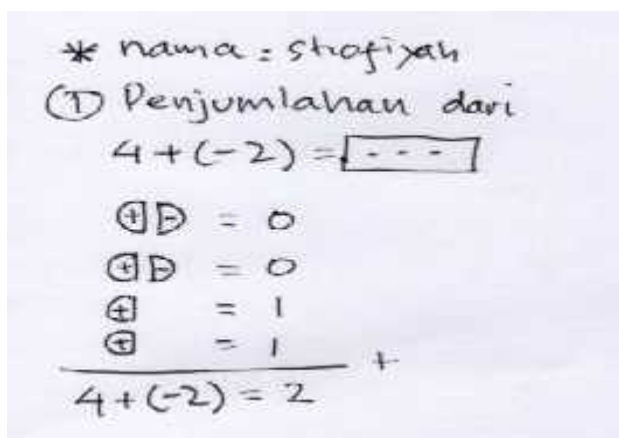 * nama : shofiyah
① Penjumlahan dari
4 + (-2) = - - -
⊕⊖ = 0
⊕⊖ = 0
⊕ = 1
⊕ = 1
+
4 + (-2) = 2